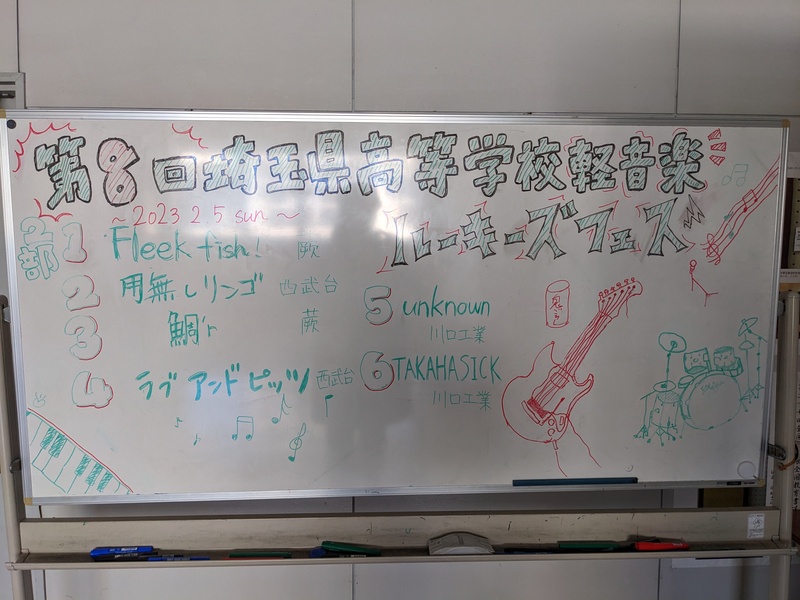 第8回埼玉県高等学校軽音楽
ルーキーズフェス
～2023 2.5 sun～
2部
1 Fleek fish! 蕨
2 用無しリンゴ 西武台
3 鯛'r 蕨
4 ラブアンドピッツ 西武台
5 unknown
川口工業
6 TAKAHASICK
川口工業